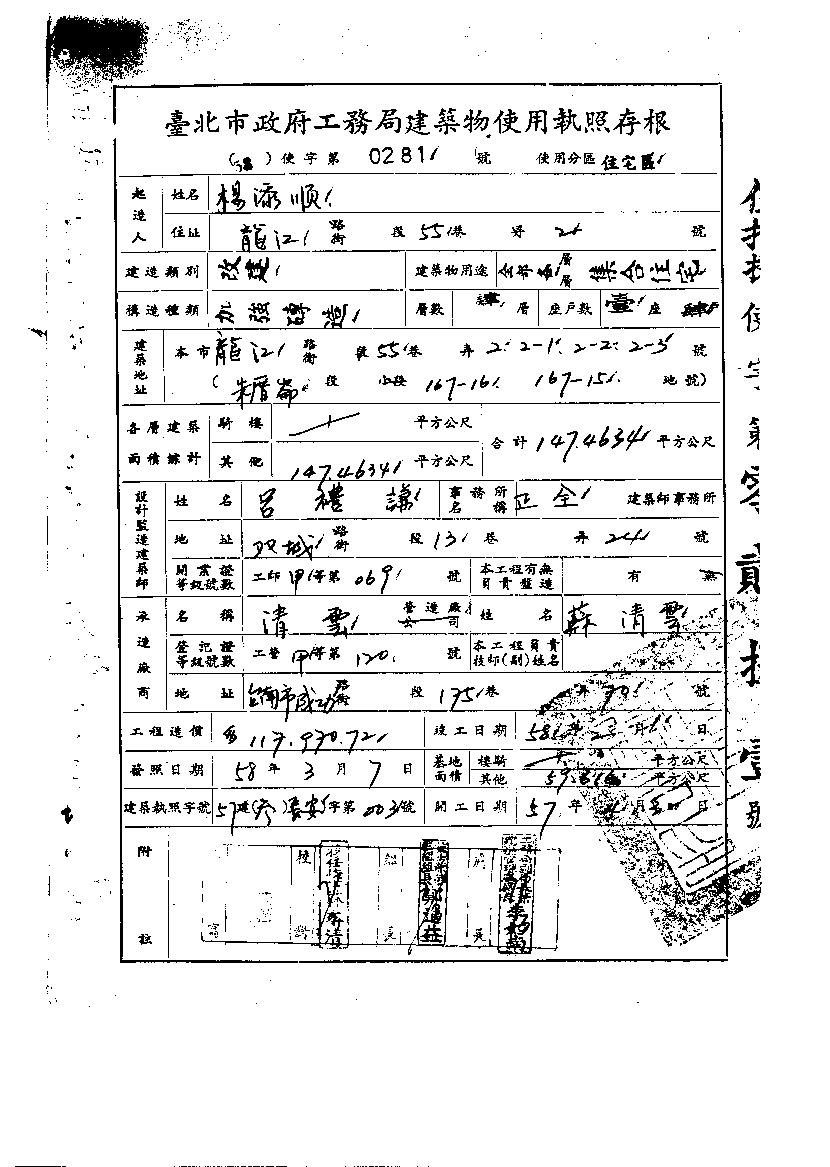 臺北市政府工務局建築物使用執照存根
(58)使字第 0281 號 使用分區 住宅區
起造人 姓名 楊添順
住址 龍江 路街 段 55 巷 弄 2 號
建造類別 改建 建築物用途 全部 層層 集合住宅
構造種類 加強磚造 層數 肆 層 座戶數 壹 座 肆戶
建築地址 本市 龍江 路街 段 55 巷 弄 2. 2-1. 2-2. 2-3 號
(朱厝崙 段 小段 167-16 167-15 地號)
各層建築面積總計 騎樓 平方公尺 合計 147.4634 平方公尺
其他 147.4634 平方公尺
設計監造建築師 姓名 呂禮謙 事務所名稱 正全 建築師事務所
地址 双城 路街 段 13 巷 弄 24 號
開業證等級號數 工師甲等第 069 號 本工程有無負責監造 有 無
承造廠商 名稱 清雲 營造廠公司 姓名 蘇清雲
登記證等級號數 工營甲等第 120 號 本工程負責技師(副)姓名
地址 台南市成功 路街 段 175 巷 弄 70 號
工程造價 $117.970.72 竣工日期 58 年 2 月 日
發照日期 58 年 3 月 7 日 基地面積 樓騎 平方公尺
其他 59.616 平方公尺
建築執照字號 57建( )字第 003 號 開工日期 57 年 月 日
附註
校對
組長
股長
使字第零貳捌壹號